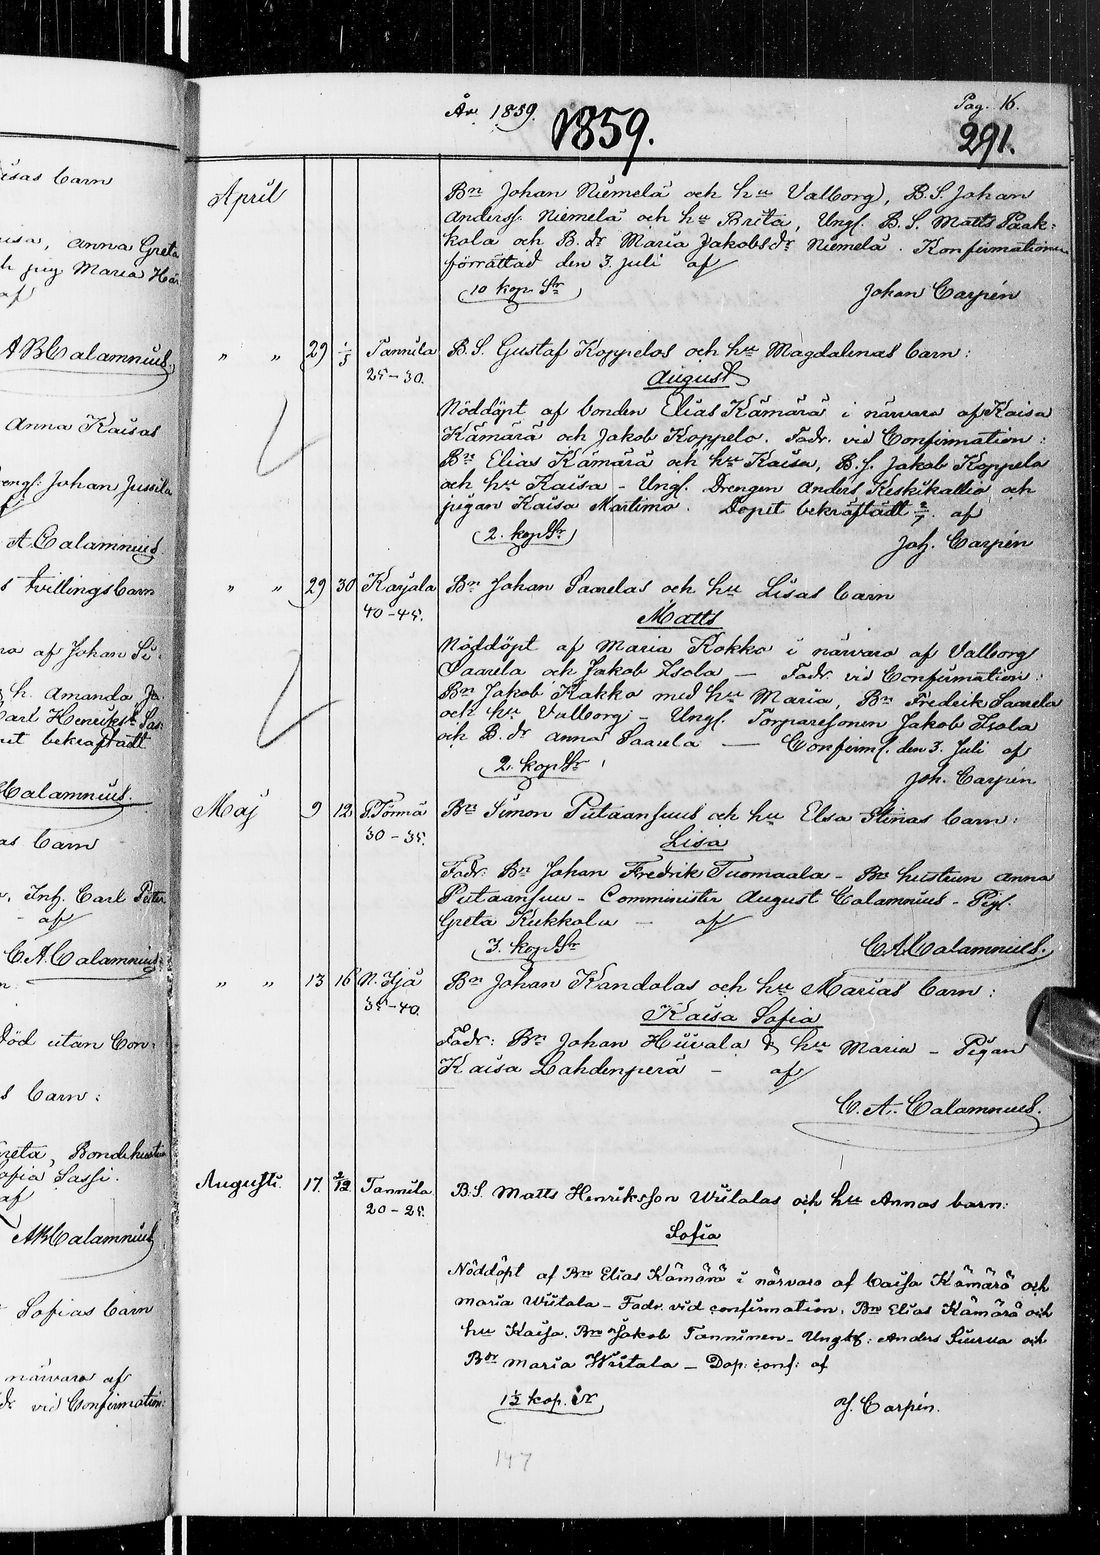 isas barn
nisa, Anna Greta
h pig. Maria Här
af
A B Calamnius.
Anna Kaisas
rengs: Johan Jussila
A. Calamnius
s tvillingsbarn
ra af Johan Si-
& h. Amanda Ja-
Carl Henrikss. Sas-
pet bekräftadt
Calamnius.
as barn
r. Inh. Carl Petter
- af
C. A. Calamnius
n:
död utan Con-
s barn:
Greta, Bondehustru
Sofia Sassi.
af
AB Calamnius
Sofias barn
närvaro af
dr vid Confirmation:
År 1859. Pag. 16.
1859. 291.
April Bn Johan Niemelä och hu Valborg, B.S. Johan
Anderss. Niemelä och hu Brita, Ungl. B.S. Matts Paak-
kola och B.dr Maria Jakobsdr Niemelä. Konfirmationen
förrättad den 3. Juli af
10 kop. Sr Johan Carpén
" " 29 1/5 Tannila B.S. Gustaf Koppelos och hu Magdalenas barn:
25-30. August
Nöddöpt af bonden Elias Kämärä i närvaro af Kaisa
Kämärä och Jakob Koppelo. Fadr. vid Confirmation:
Bn Elias Kämärä och hu Kaisa, B.S. Jakob Koppelo
och hu Kaisa - Ungl. Drengen Anders Keskikallio och
pigan Kaisa Martimo. Dopet bekräftadt 2/7 af
2. kop Sr Joh. Carpén
" " 29 30 Karjala Bn Johan Saarelas och hu Lisas barn
40-45. Matts
Nöddöpt af Maria Kokko i närvaro af Valborg
Saarela och Jakob Isola — Fadr. vid Confirmation:
Bn Jakob Kakko med hu Maria, Bn Fredrik Saarela
och hu Valborg - Ungl. Torparesonen Jakob Isola
och B.dr Anna Saarela — Confirm. den 3. Juli af
2. kop Sr Joh. Carpén
Maj 9 12 P. Törmä Bn Simon Putaansuus och hu Elsa Stinas barn:
30-35. Lisa
Fadr: Bn Johan Fredrik Tuomaala - Bn hustrun Anna
Putaansuu - Comminister August Calamnius - Pig.
Greta Kukkola — af
3. kop Sr C. A. Calamnius.
" " 13 16 N. Ijå Bn Johan Kandolas och hu Marias barn:
35-40. Kaisa Sofia
Fadr: Bn Johan Hiivala & hu Maria - Pigan
Kaisa Lahdenperä - af
C. A. Calamnius.
Augusti. 17. 2/12 Tannila B.S. Matts Henriksson Wiitalas och hu Annas barn:
20-25. Sofia
Nöddöpt af Bn Elias Kämärä i närvaro af Caisa Kämärä och
Maria Wiitala - Fadr. vid confirmation: Bn Elias Kämärä och
hu Kaisa. Bn Jakob Tanninen - Ungkf: Anders Siurua och
Bdr Maria Wiitala - Dop: conf: af
1½ kop. Sr J. Carpén.
147